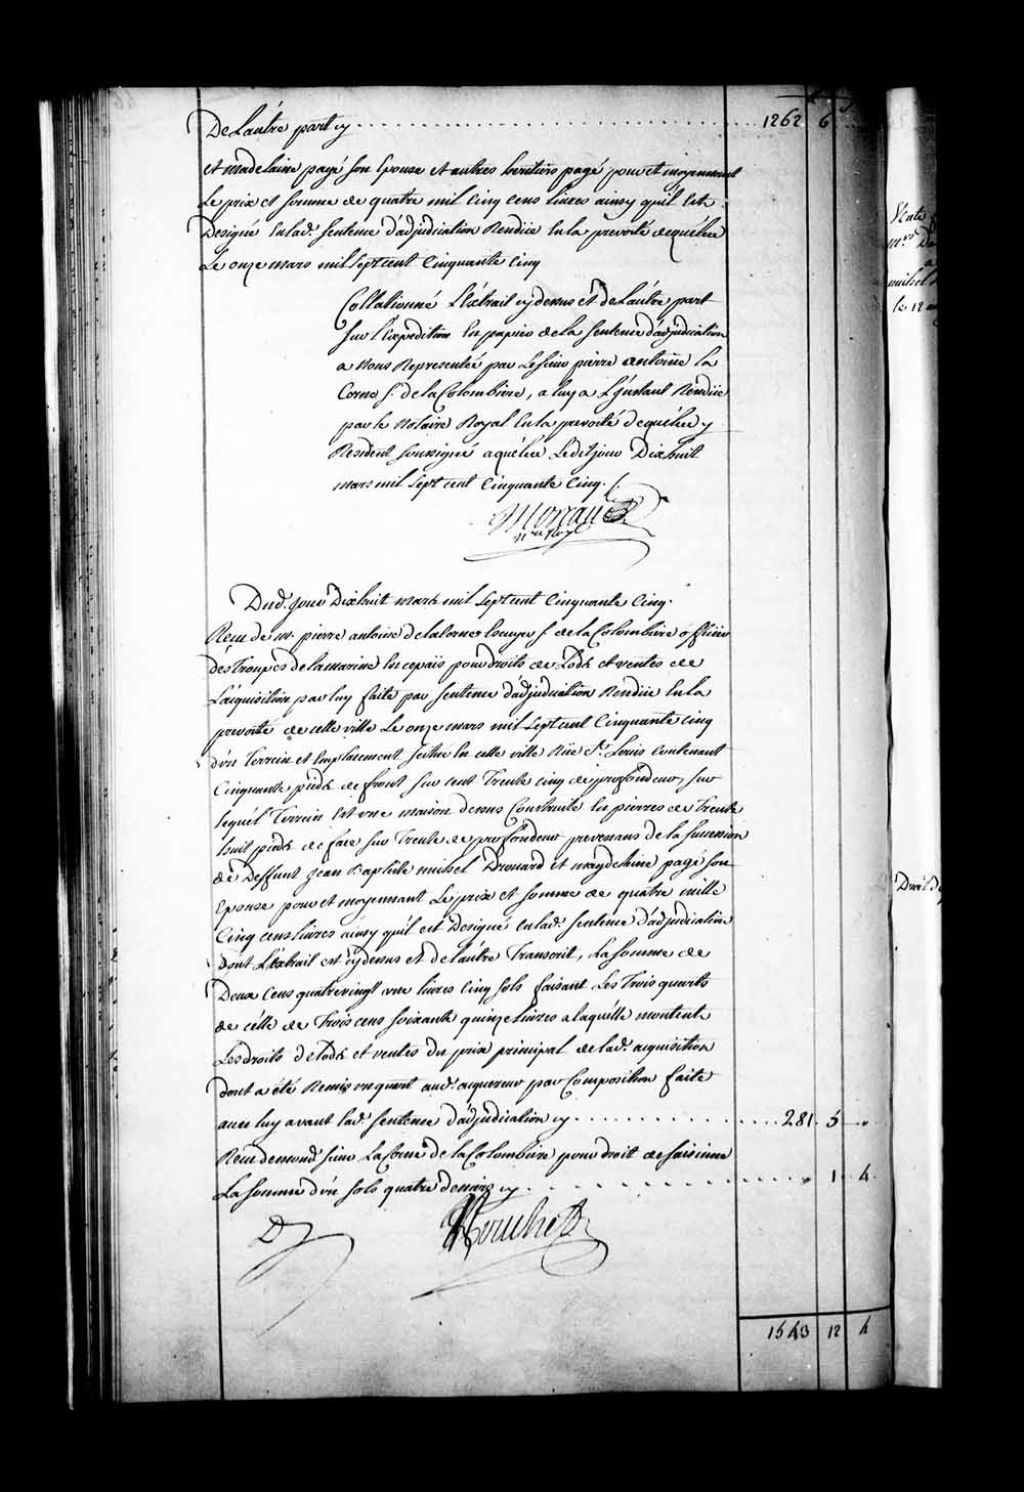 De L'autre part cy ........ 1262 6
et Madelaine pagé son Epouse et autres heritiers pagé pour et moyennant
Le prix et somme de quatre mil Cinq cens livres ainsy qu'il Est
Designé Enlad. sentence d'adjudication Rendüe En la prevoté de quebec
Le onze mars mil sept cent Cinquante Cinq
Collationné L'Extrait cy dessus et de L'autre part
sur L'Expedition En papier de la sentence d'adjudication
a Nous Representée par Le sieur pierre antoine la
Corne s. de la Colombiere, a luy a L'instant Rendüe
par le Notaire Royal En la prevoté de quebec y
Resident soussigné a quebec Ledit jour Dixhuit
mars mil sept cent Cinquante Cinq.
Moreau
Nre Roy.
Dud. jour Dixhuit mars mil sept cent Cinquante Cinq.
Reçu de M. pierre antoine de la Corne Ecuyer s. de la Colombiere officier
des Troupes de la marine En ce païs pour droits de Lods et ventes de
L'acquisition par luy faite par sentence d'adjudication Rendüe En la
prevoté de cette ville Le onze mars mil sept cent Cinquante cinq
d'un Terrein et Emplacement scitué En cette ville Rüe St. Louis Contenant
Cinquante pieds de front sur cent Trente cinq de profondeur, sur
lequel Terrein Est une maison dessus Construite En pierres de Trente
huit pieds de face sur Trente de profondeur provenans de la succession
de Deffunt Jean Baptiste michel Drouard et magdelaine pagé son
Epouse pour et moyennant Le prix et somme de quatre mille
Cinq cens livres ainsy qu'il est Designé en lad. sentence d'adjudication
Dont L'Extrait est cy dessus et de l'autre Transcrit, La somme de
Deux Cens quatrevingt une livres Cinq sols faisant Les Trois quarts
de celle de Trois cens soixante quinze Livres a laquelle montent
Les droits de Lods et ventes du prix principal de lad. acquisition
dont a été Remis un quart aud. acquereur par Composition faite
avec luy avant lad. sentence d'adjudication cy ........ 281. 5 "
Reçu demond. sieur La Corne de la Colombiere pour droit de saisinne
La somme d'un sols quatre deniers cy ........ " 1. 4.
1543 12 4